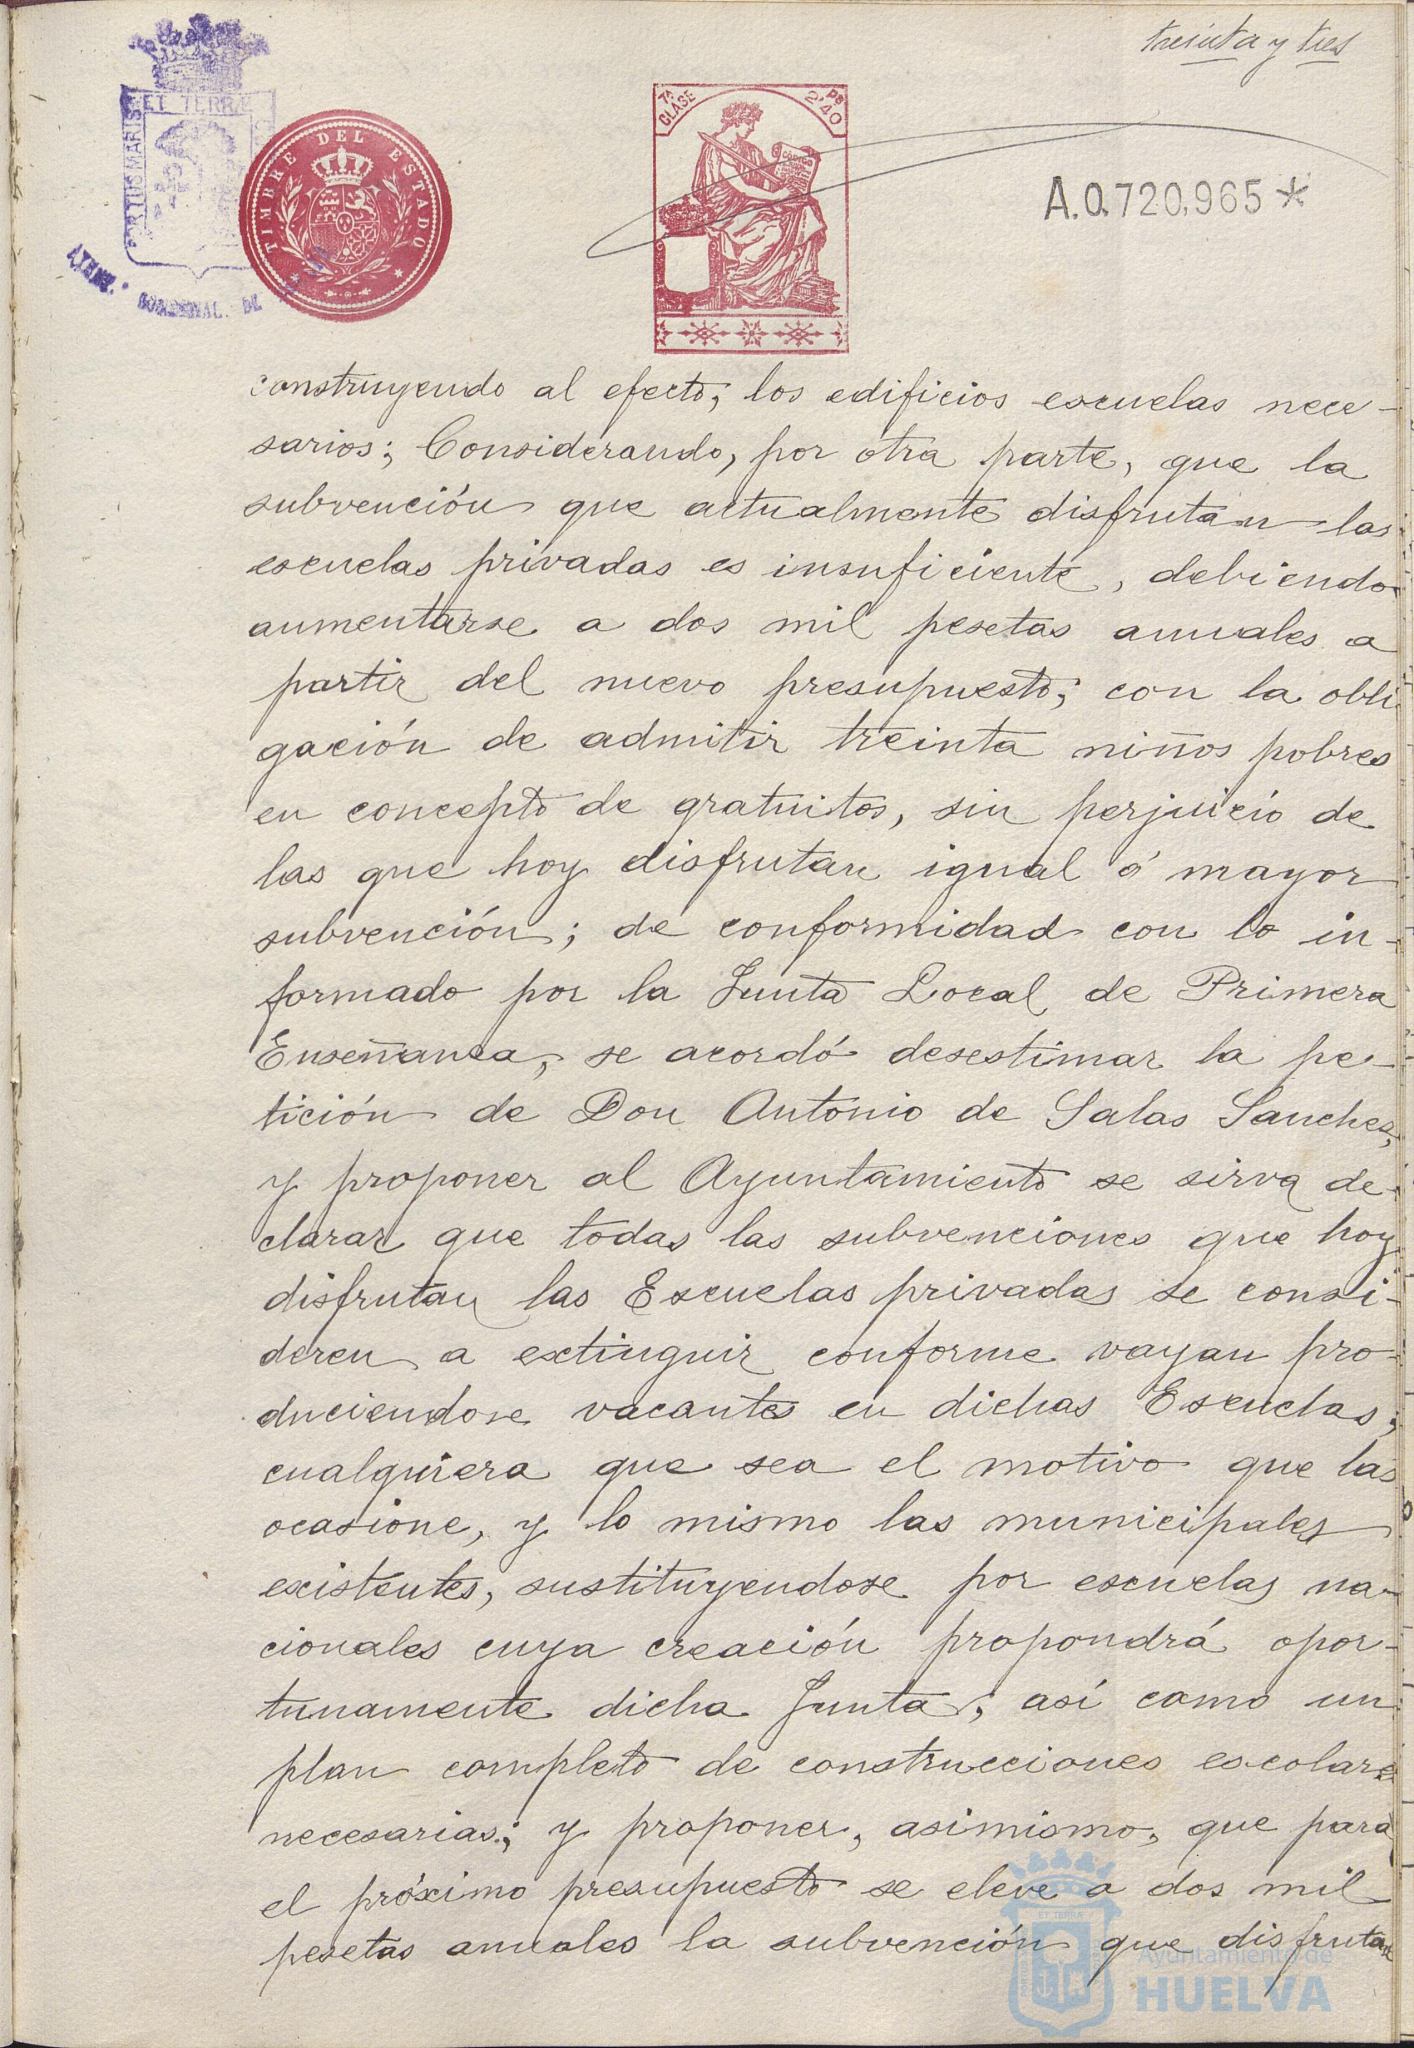 treinta y tres
PORTUS MARIS ET TERRÆ
TIMBRE DEL ESTADO
7ª CLASE
2'40 PS
A.0.720,965 *
construyendo al efecto, los edificios escuelas nece-
sarios; Considerando, por otra parte, que la
subvención que actualmente disfrutan las
escuelas privadas es insuficiente, debiendo
aumentarse a dos mil pesetas anuales a
partir del nuevo presupuesto, con la obli
gación de admitir treinta niños pobres
en concepto de gratuitos, sin perjuicio de
las que hoy disfrutan igual ó mayor
subvención; de conformidad con lo in-
formado por la Junta Local de Primera
Enseñanza, se acordó desestimar la pe-
tición de Don Antonio de Salas Sanchez,
y proponer al Ayuntamiento se sirva de-
clarar que todas las subvenciones que hoy
disfrutan las Escuelas privadas se consi-
deren a extinguir conforme vayan pro-
duciendose vacantes en dichas Escuelas,
cualquiera que sea el motivo que las
ocasione, y lo mismo las municipales
existentes, sustituyendose por escuelas na-
cionales cuya creación propondrá opor-
tunamente dicha Junta, así como un
plan completo de construcciones escolares
necesarias; y proponer, asimismo, que para
el próximo presupuesto se eleve a dos mil
pesetas anuales la subvención que disfrutan
Ayuntamiento de
HUELVA